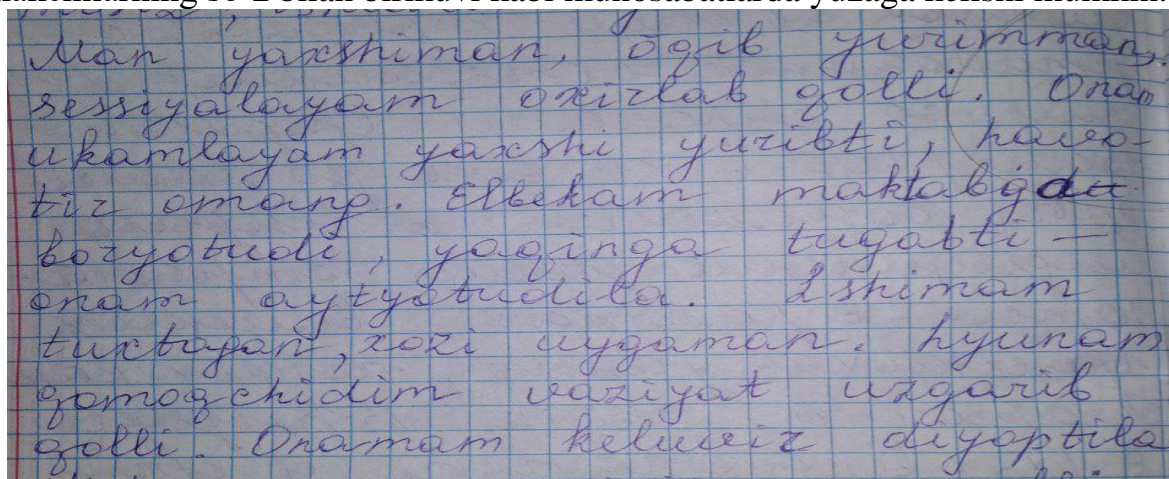 Man yaxshiman, õqib yurimman,
sessiyalayam oxirlab qolli. Onam
ukamlayam yaxshi yuribti, havo-
tir omang. Elbekam maktabga
boryotudi, yaqinga tugatti —
onam aytyotudila. Ishimam
tuxtagan, xozi uygaman. hyunam
qomoqchidim vaziyat uzgarib
qolli. Onamam keluviz diyaptila